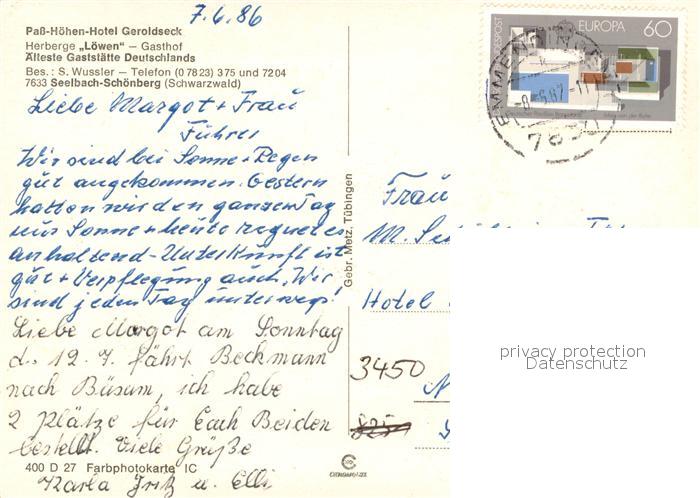 7.6.86
Paß-Höhen-Hotel Geroldseck
Herberge „Löwen" – Gasthof
Älteste Gaststätte Deutschlands
Bes.: S. Wussler – Telefon (0 78 23) 3 75 und 72 04
7633 Seelbach-Schönberg (Schwarzwald)
Liebe Margot + Frau
Führer
Wir sind bei Sonne + Regen
gut angekommen. Gestern
hatten wir den ganzen Tag
nur Sonne + heute regnet es
anhaltend – Unterkunft ist
gut + Verpflegung auch, Wir
sind jeden Tag unterwegs!
Liebe Margot am Sonntag
d. 12.7. fährt Beckmann
nach Büsum, ich habe
2 Plätze für Euch Beiden
bestellt. Viele Grüße
Karla Fritz u. Elli
400 D 27 Farbphotokarte IC
Gebr. Metz, Tübingen
DEUTSCHE BUNDESPOST
EUROPA 60
EMMENDINGEN
783
Frau
M.
Hotel
3450
privacy protection
Datenschutz